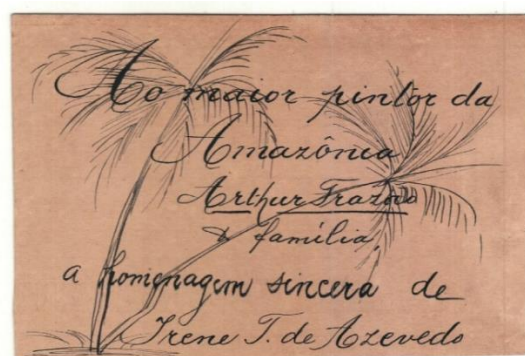 Ao maior pintor da
Amazônea
Arthur Frazão
& família,
a homenagem sincera de
Irene T. de Azevedo